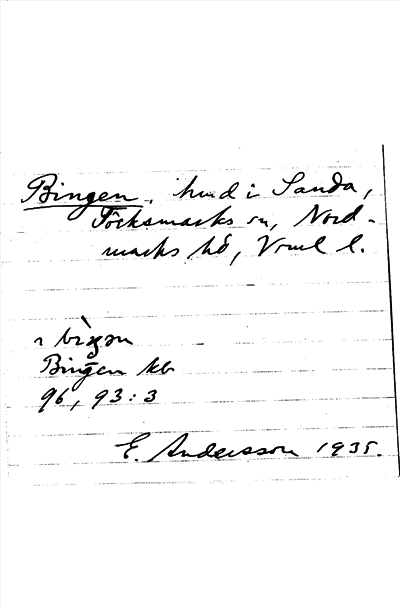 Bingen, hmd i Sanda,
Töcksmarks sn, Nord-
marks hd, Vrml l.
Bingen kb
96, 93:3
E. Andersson 1935.